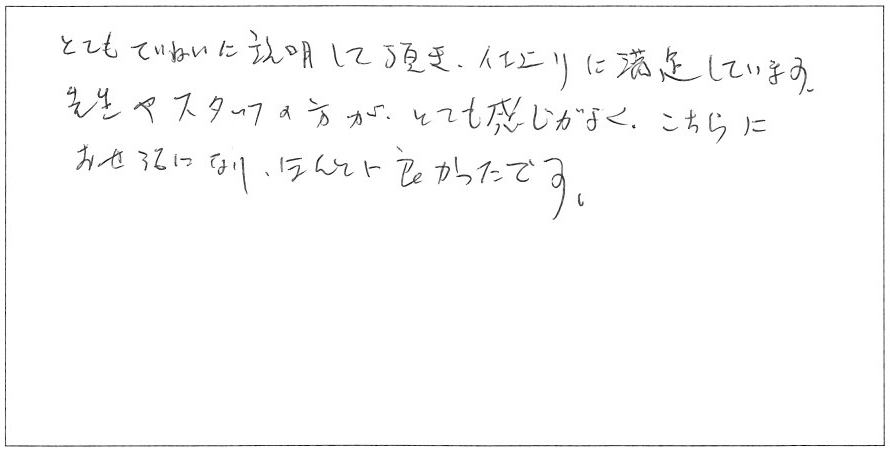 とても ていねいに説明して頂き、仕上りに満足しています。
先生やスタッフの方が、とても感じがよく、こちらに
おせ話になり、ほんとに良かったです。